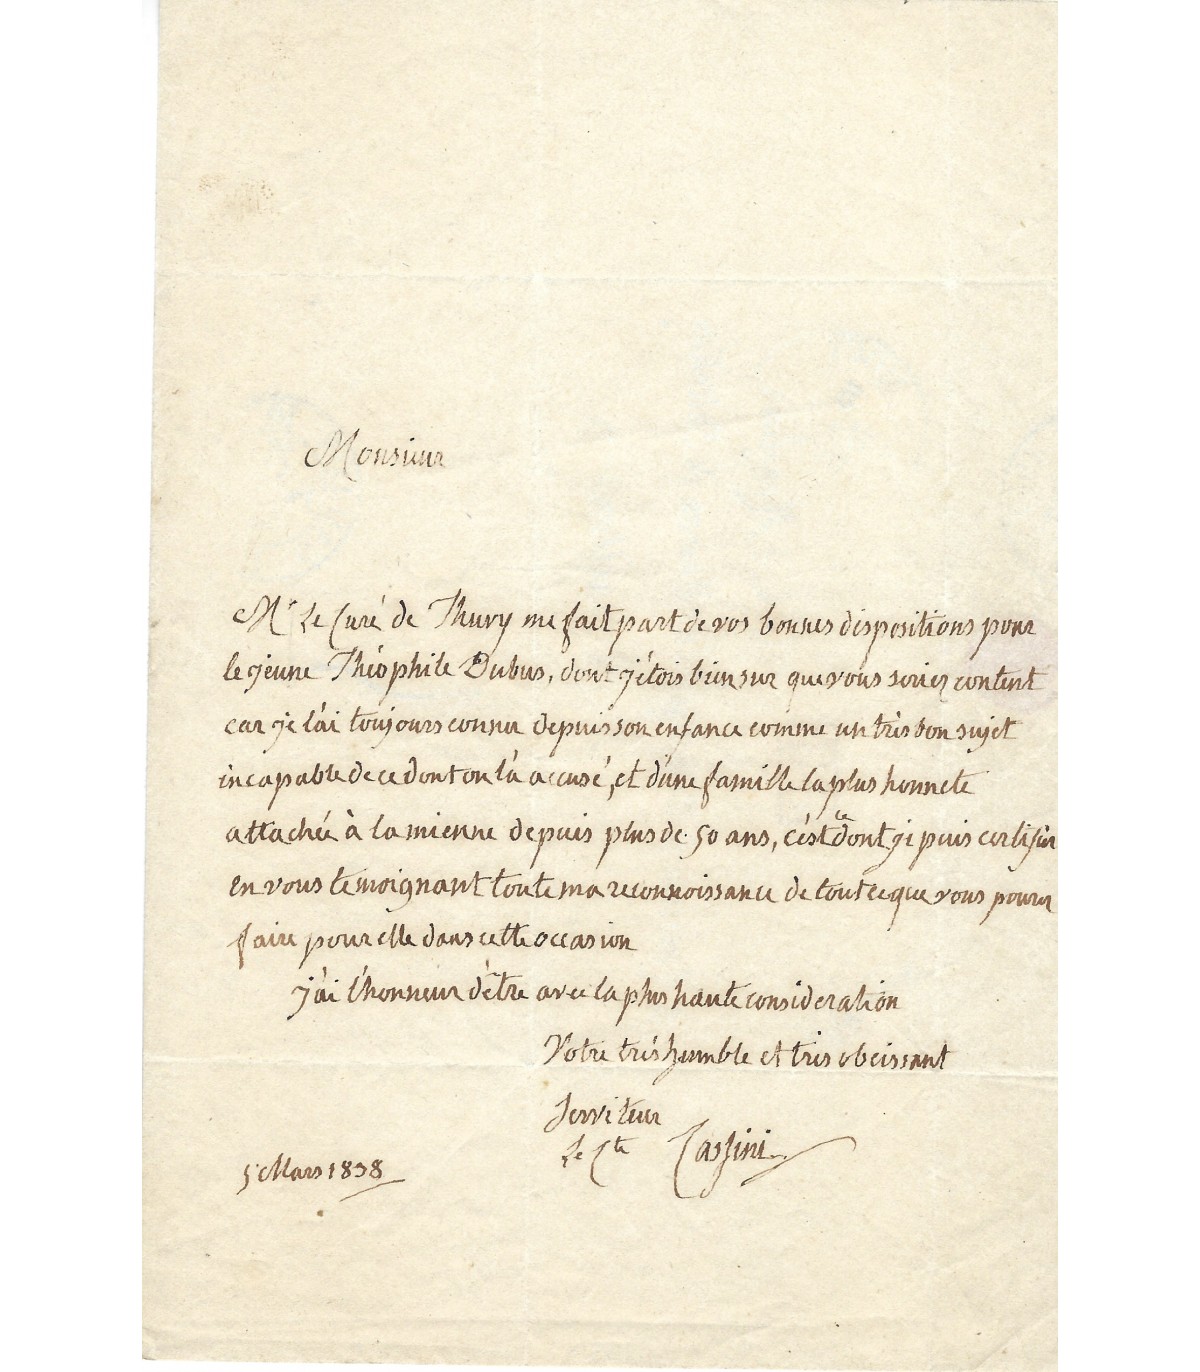 Monsieur
Mr Le Curé de Thury me fait part de vos bonnes dispositions pour
le jeune Théophile Dubus, dont j'étois bien sur que vous seriez content
car je l'ai toujours connu depuis son enfance comme un très bon sujet
incapable de ce dont on l'a accusé, et d'une famille la plus honnete
attachée à la mienne depuis plus de 50 ans, c'est ce dont je puis certifier
en vous temoignant toute ma reconnoissance de tout ce que vous pourez
faire pour elle dans cette occasion
j'ai l'honneur d'être avec la plus haute consideration
Votre très humble et tres obeissant
Serviteur
Le Cte Cassini
5 Mars 1838